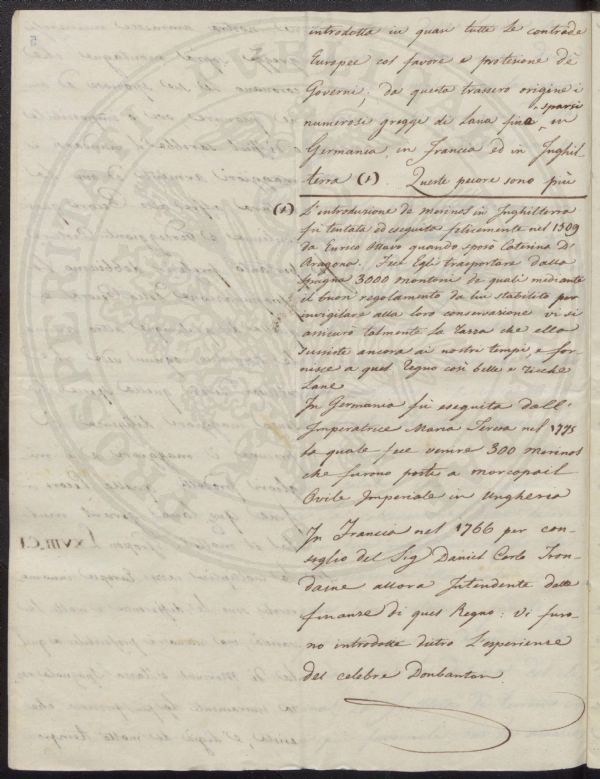 introdotta in quasi tutte le contrade
Europee col favore e protezione de'
Governi; da questa trassero origine i
numerosi gregge di Lana fina sparsi in
Germania, in Francia ed in Inghil
terra (1). Queste pecore sono più
(1) L'introduzione de merinos in Inghilterra
fu tentata ed eseguita felicemente nel 1509
da Enrico Ottavo quando sposò Caterina D'
Aragona. Fece Egli trasportare dalla
Spagna 3000 montoni de quali mediante
il buon regolamento da lui stabilito per
invigilare alla loro conservazione vi si
assicurò talmente la razza che ella
sussiste ancora ai nostri tempi, e for-
nisce a quel Regno così belle e ricche
Lane
In Germania fu eseguita dall'
Imperatrice Maria Teresa nel 1775
la quale fece venire 300 merinos
che furono posti a mercopail
Ovile Imperiale in Ungheria
In Francia nel 1766 per con-
siglio del Sig Daniel Carlo Tron-
daine allora Intendente delle
finanze di quel Regno: vi furo-
no introdotte dietro L'esperienze
del celebre Donbanton